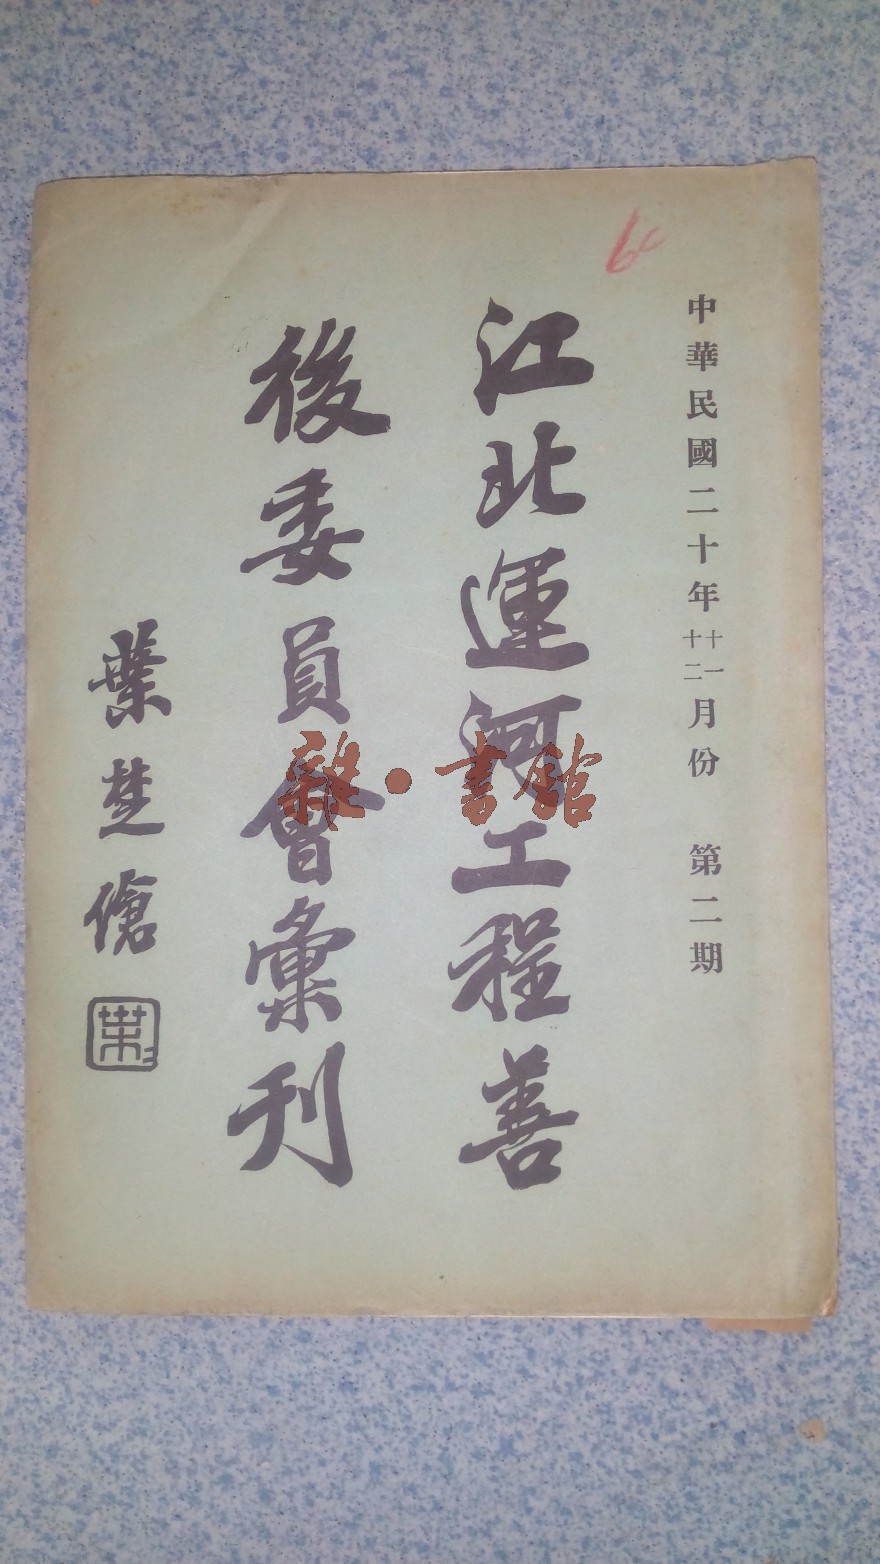 中華民國二十年十一十二月份 第二期
江北運河工程善
後委員會彙刊
葉楚傖
葉
雜·書館
6